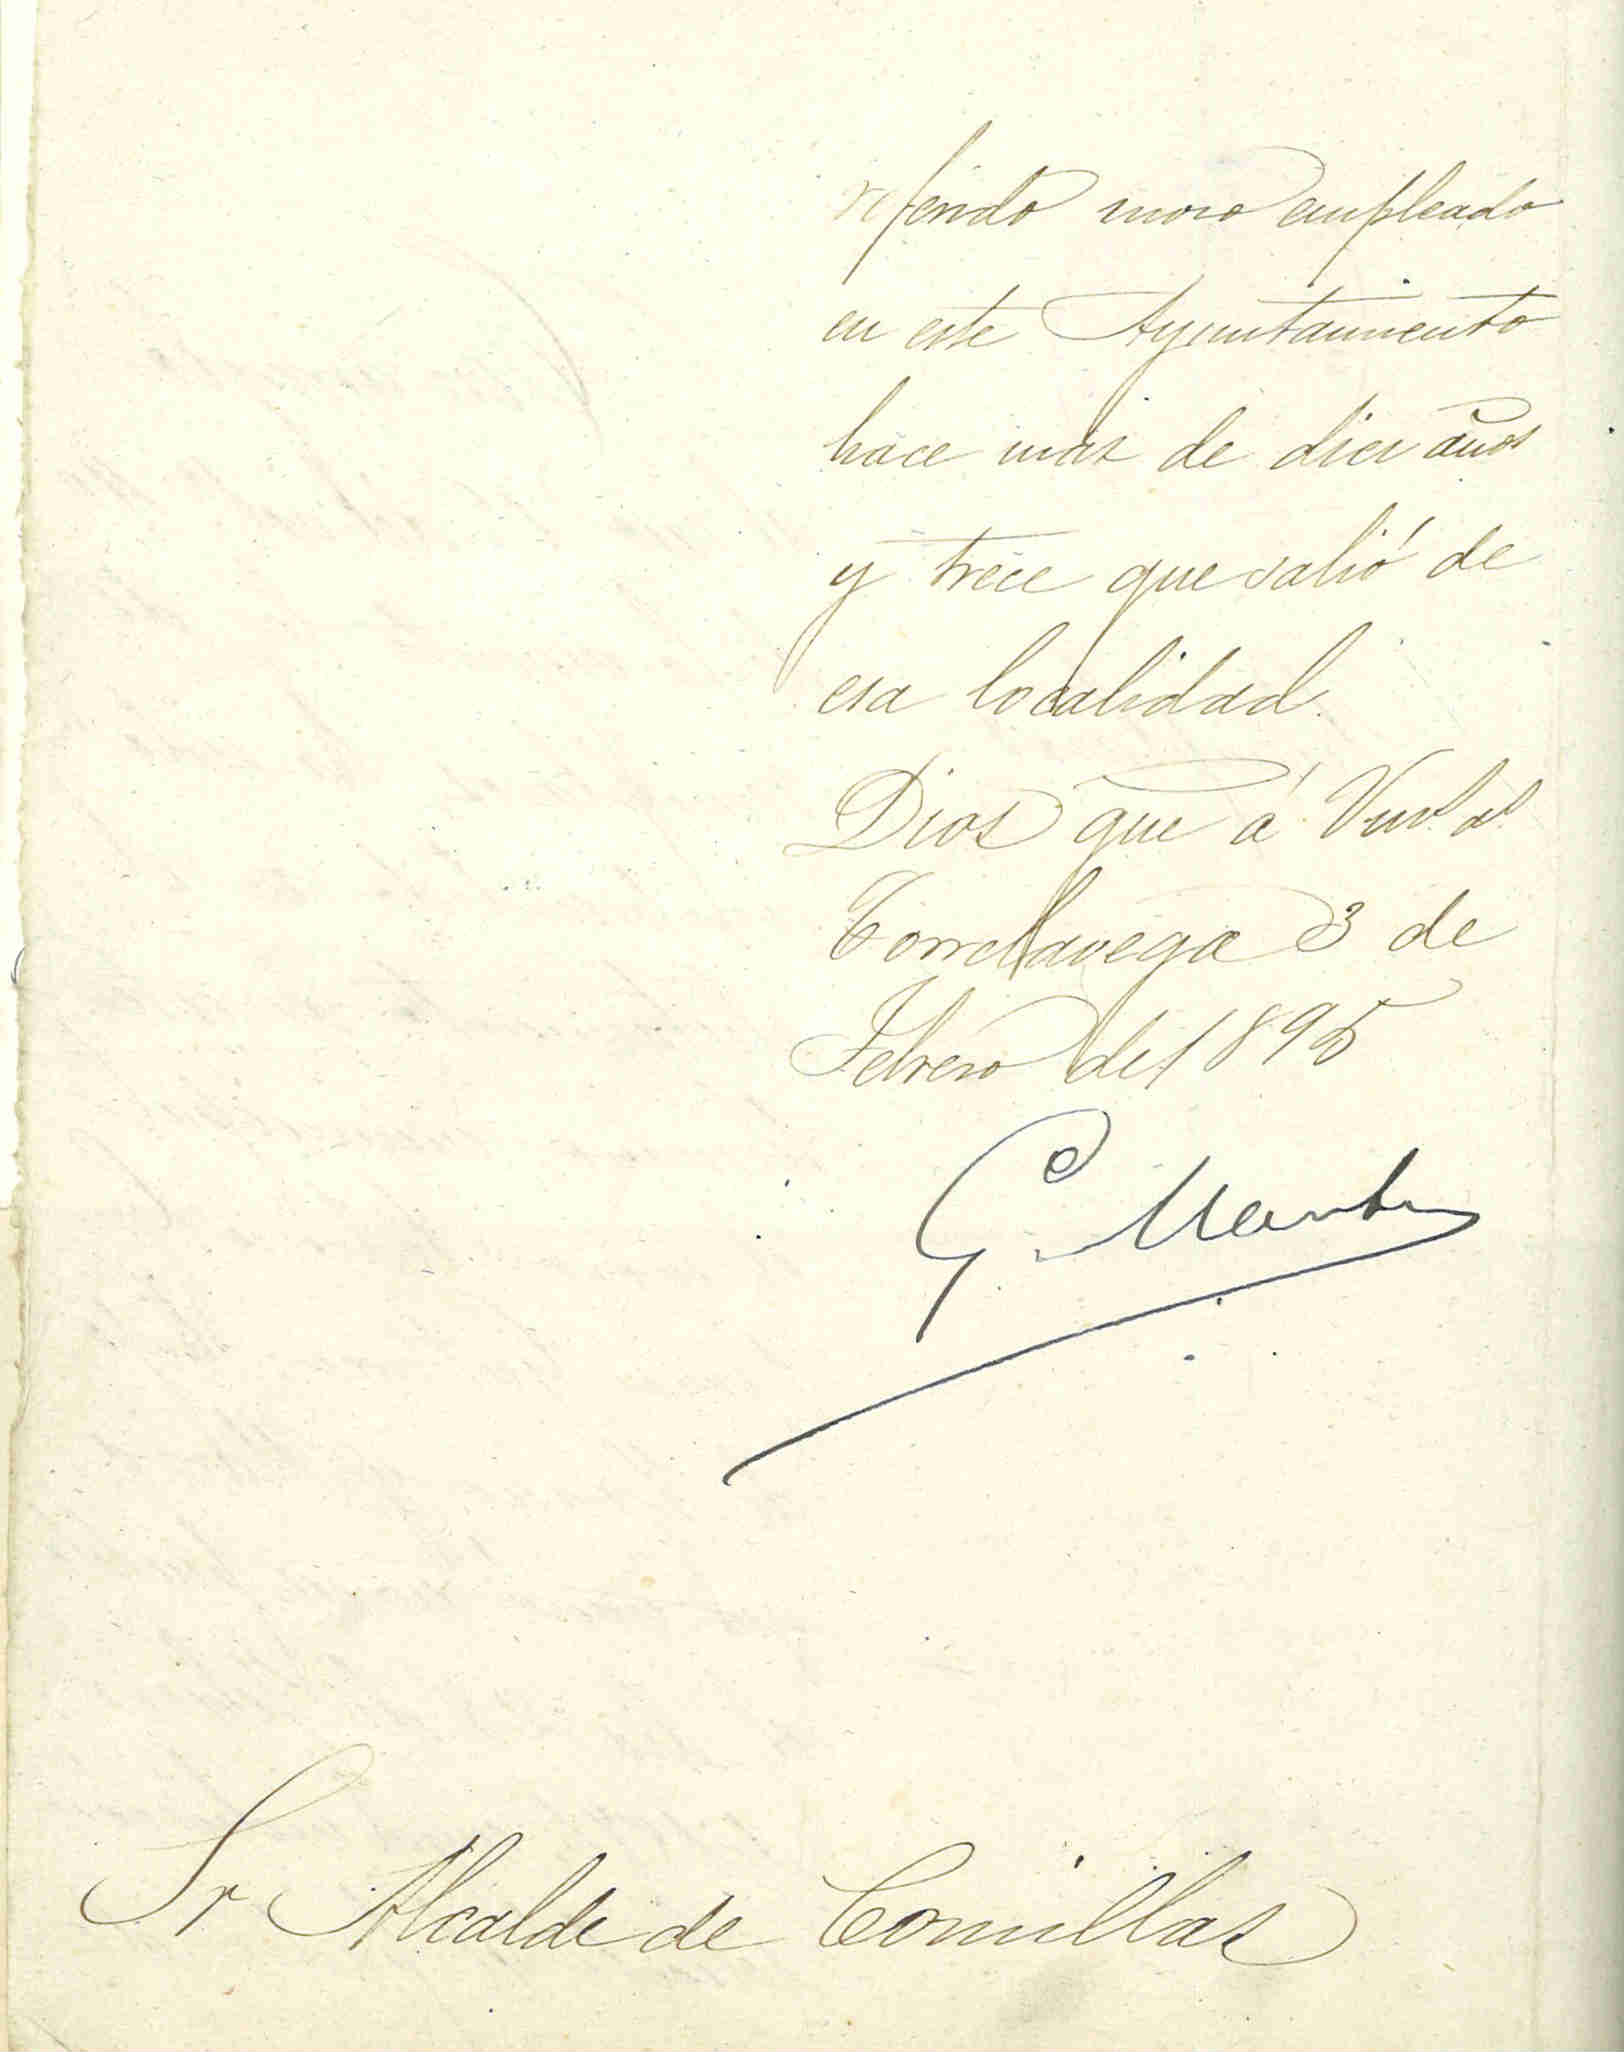 referido moro empleado
en este Ayuntamiento
hace mas de diez años
y trece que salió de
esa localidad.
Dios gue á Vm.
Torrelavega 3 de
Febrero de 1895
G.
Sr Alcalde de Comillas